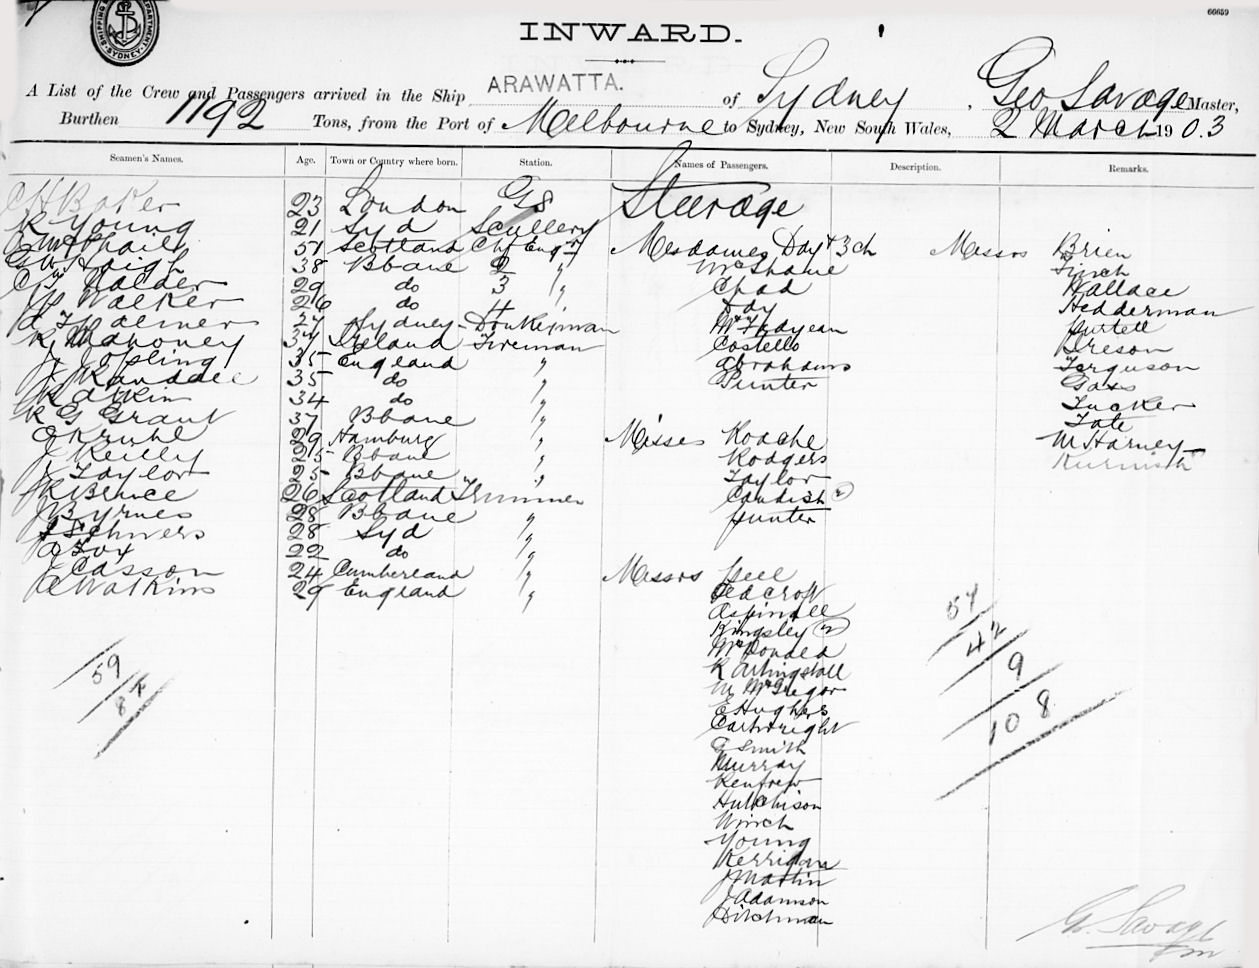 66659
SHIPPING
DEPARTMENT
SYDNEY
INWARD.
A List of the Crew and Passengers arrived in the Ship ARAWATTA. of Sydney, Geo Savage Master,
Burthen 1192 Tons, from the Port of Melbourne to Sydney, New South Wales, 2 March 1903
Seamen's Names. Age. Town or Country where born. Station. Names of Passengers. Description. Remarks.
C H Baker 23 London GS
R Young 21 Syd Scullery
51 Scotland Chf Engr
38 Bbane 2 "
29 do 3 "
Walker 26 do 4 "
Sydney Donkeyman
R Mahoney 34 Ireland Fireman
J Jopling 35 England "
J Randall 35 do "
34 do "
R G Grant 37 Bbane "
29 Hamburg "
J Reilly 25 Bbane "
J Taylor 25 Bbane "
R Bruce 26 Scotland Trimmer
J Byrnes 28 Bbane "
28 Syd "
Fox 22 do "
J Casson 24 Cumberland "
Watkins 29 England "
59
87
Steerage
Mesdames Day & 3 ch
McShane
Chad
Day
McFadyean
Costello
Abrahams
Punter
Misses Roache
Rodgers
Taylor
Candish 2
Hunter
Messrs Peel
Aspinall
Kingsley 2
McDonald
R Artingstall
McGregor
E Hughes
Cartwright
G Smith
Murray
Renfrew
Hutchison
Winch
Young
Kerridan
J Martin
J Adamson
Ditchman
Messrs Brien
Lynch
Wallace
Hedderman
Purtell
Ferguson
Tucker
Tate
McHarney
57
42
9
108
Geo. Savage